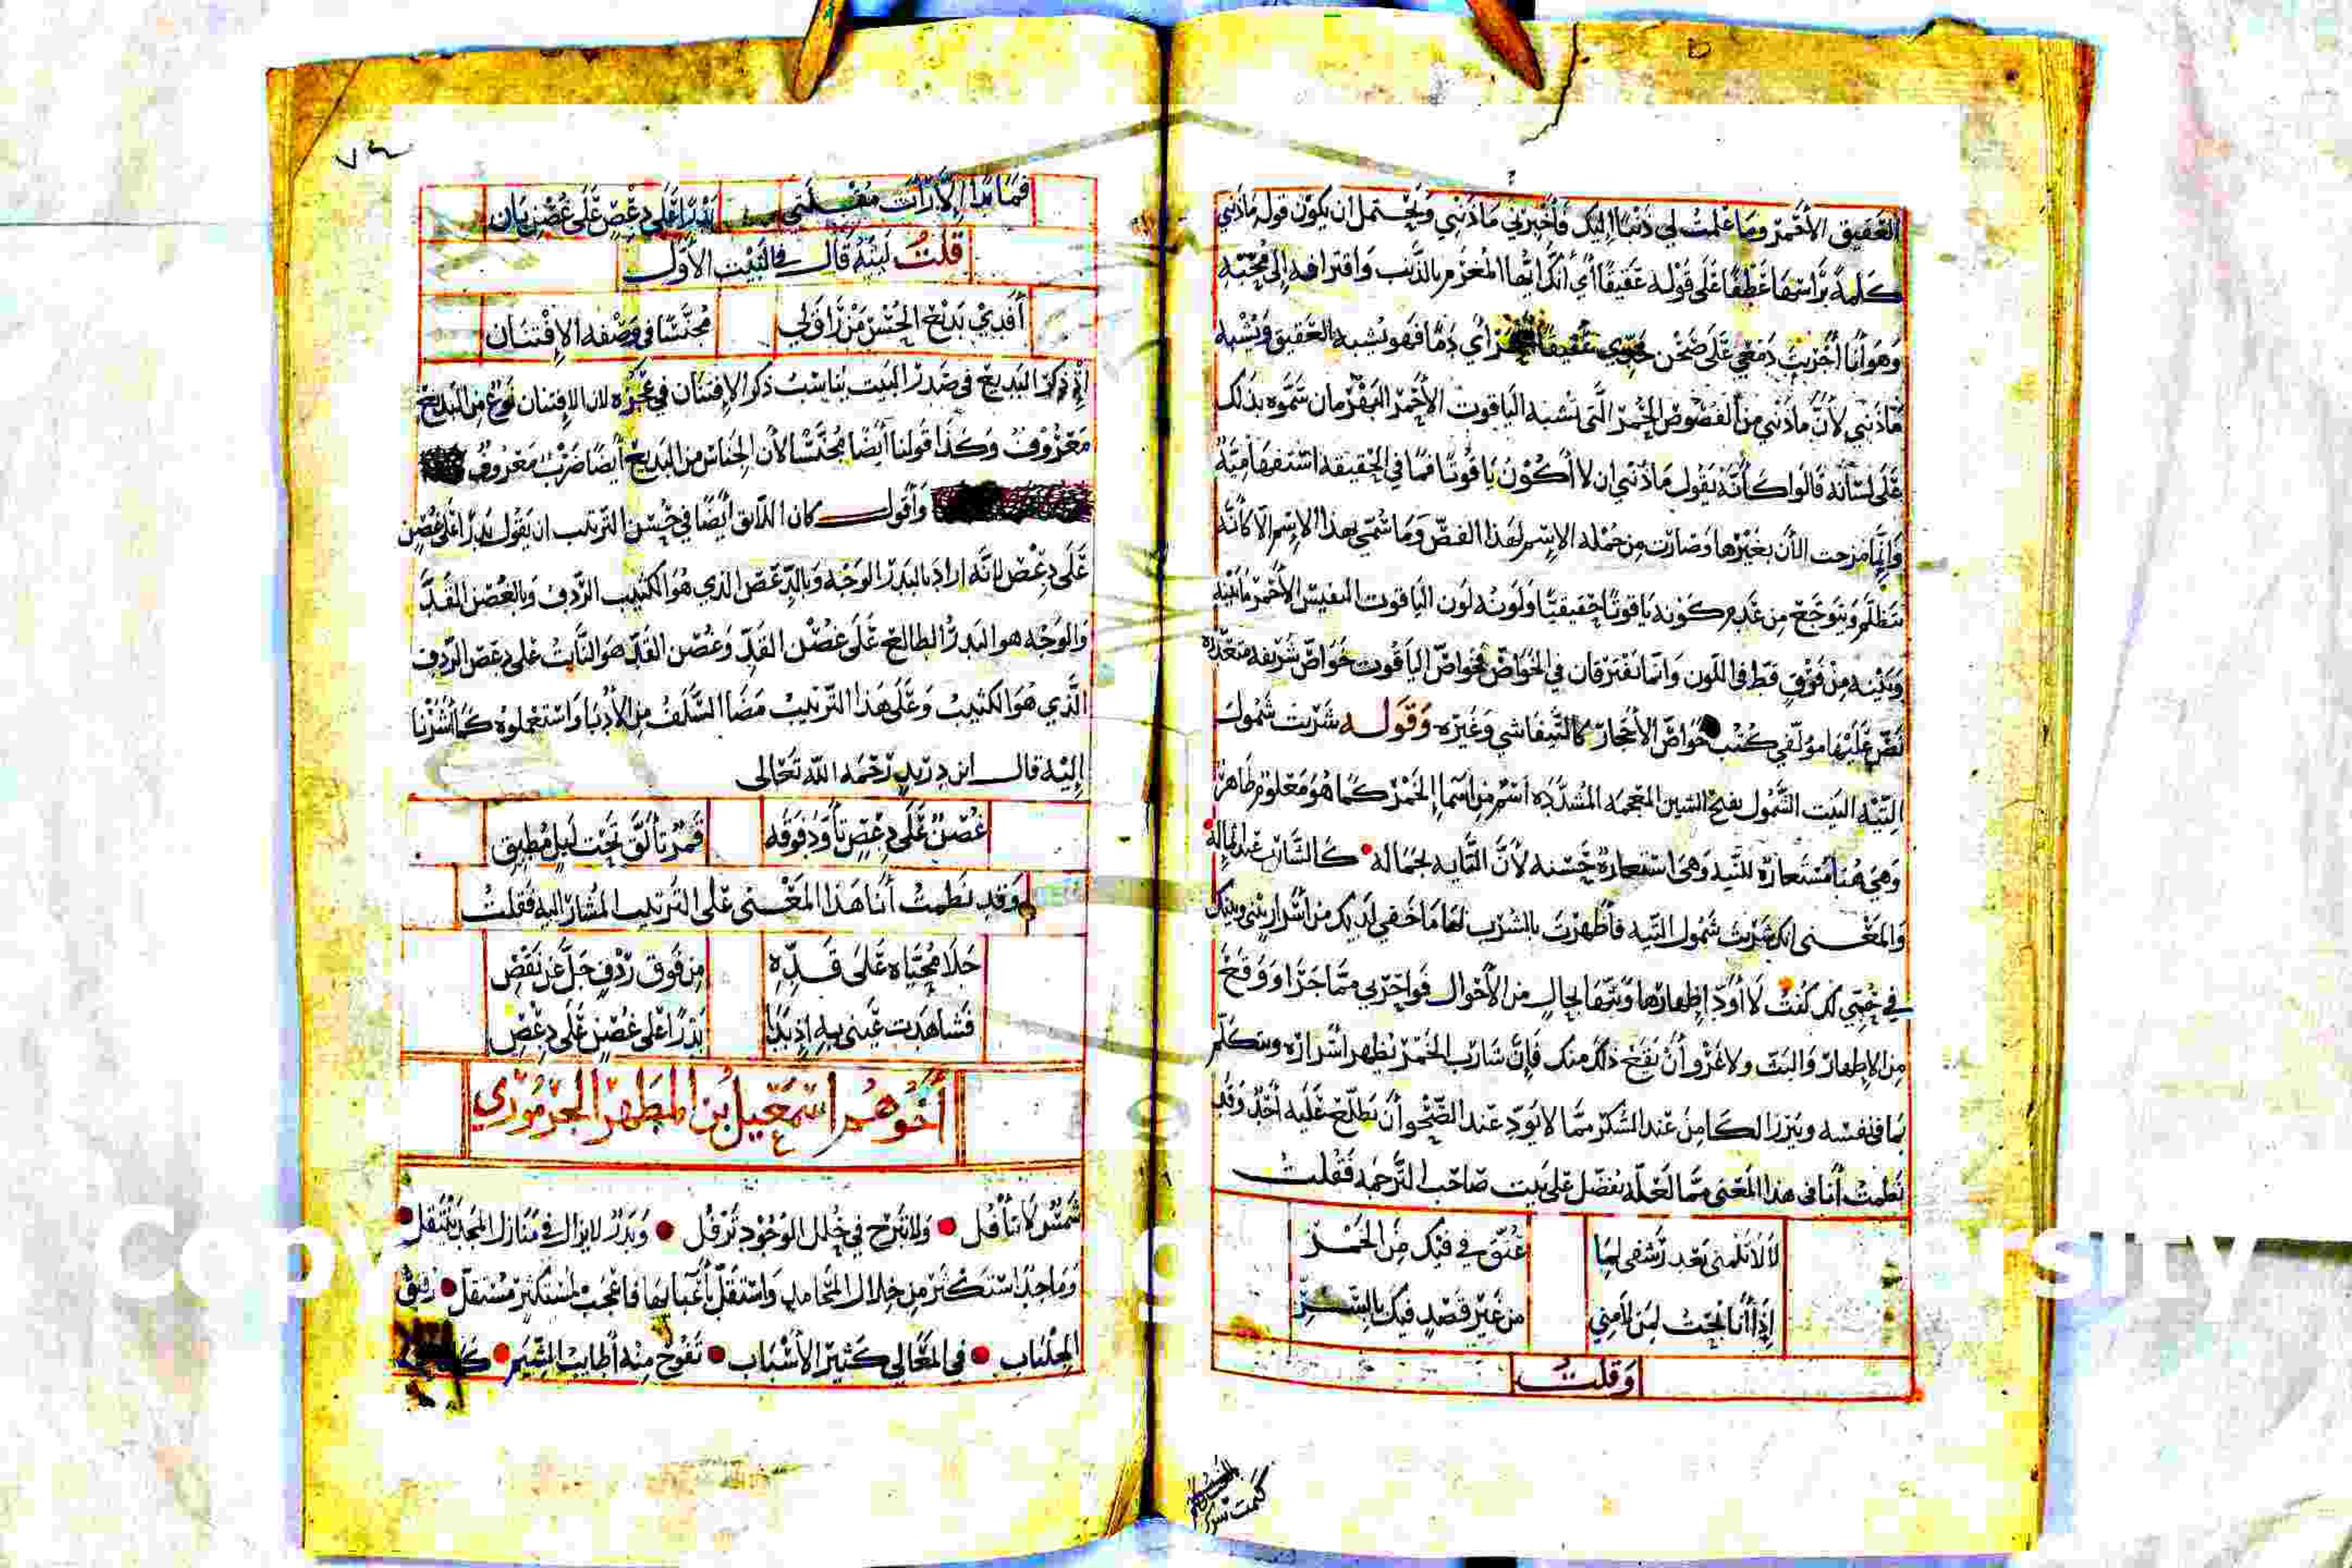 العقيق الأحمر وما علمت لي ذنبا إليك فأخبرني ما ذنبي ويحتمل ان يكون قوله ماذنبي
كلمة برأسها عطفا على قوله عقيقا أي أنكر أيها المغرم بالذنب واقترافه إلى محبته
وهو أنا أجريت دمعي على صحن خدي عقيقا أي دما فهو يشبه العقيق ويشبه
ماذنبي لأن ماذنبي من الفصوص الحمر التي تشبه الياقوت الأحمر البهرمان سموه بذلك
على لسانه قالوا كأنه يقول ما ذنبي ان لا أكون ياقوتا فما في الحقيقة استفهامية
وإنما مزجت الآن بغيرها وصارت من جملة الاسم لهذا الفص وما سمي بهذا الاسم الا كأنه
يتظلم ويتوجع من عدم كونه ياقوتا حقيقيا ولونه لون الياقوت النفيس الأحمر ما بينه
وبينه من فرق قط في اللون وانما يفترقان في الخواص فخواص الياقوت خواص شريفة متعددة
نص عليها مؤلفي كتب خواص الأحجار كالتيفاشي وغيره وقوله شربت شمول
التيه البيت الشمول بفتح الشين المعجمة المشددة اسم من أسماء الخمر كما هو معلوم ظاهر
وهي هنا مستعارة للتيه وهي استعارة حسنة لأن التايه بجماله كالشارب
والمعنى انك شربت شمول التيه فأظهرت بالشرب لها ما خفي لديك من أسرار بيني وبينك
في حبي لك كنت لا أود إظهارها وبثها لحال من الأحوال فواحربي مما جرا ووقع
من الإظهار والبث ولا غرو أن يقع ذلك منك فإن شارب الخمر يظهر أسراره ويتكلم
بما في نفسه ويبرز الكامن عند السكر مما لا يود عند الصحو أن يطلع عليه أحد وقد
نظمت أنا في هذا المعنى مما لعله يفضل على بيت صاحب الترجمة فقلت
لا لا تلمني بعد رشفي لما عتق في فيك من الخمر
إذا أنا بحت لمن لامني من غير قصد فيك بالسر
وقلت
فما بدا إلا رأت مقلتي بدرا على دعص على غصن بان
قلت ليته قال في البيت الأول
أفدي بديع الحسن من راق لي مجنسا في وصفه الافتنان
إذ ذكر البديع في صدر البيت يناسب ذكر الافتنان في عجزه لان الافتنان نوع من البديع
معروف وكذا قولنا أيضا مجنسا لأن الجناس من البديع أيضا ضرب معروف
وأقول كان اللائق أيضا في حسن الترتيب ان يقول بدرا على غصن
على دعص لانه اراد بالبدر الوجه وبالدعص الذي هو الكثيب الردف وبالغصن القد
والوجه هو البدر الطالع على غصن القد وغصن القد هو النابت على دعص الردف
الذي هو الكثيب وعلى هذا الترتيب مضا السلف من الأدبا واستعملوه كما أشرنا
إليه قال ابن دريد رحمه الله تعالى
غصن على دعص تأود فوقه قمر تألق تحت ليل مطبق
وقد نظمت أنا هذا المعنى على الترتيب المشار اليه فقلت
جلا محياه على قده من فوق ردف جل عن نقص
فشاهدت عيني به إذ بدا بدرا على غصن على دعص
أخوهم اسمعيل بن المطهر الجرموزي
شمس لا تأفل ولا تبرح في حلل الوجود ترفل وبدر لا يزال في منازل المجد يتنقل
وماجد استكثر من خلال المحامد واستقل بأعبائها فاعجب لمستكثر مستقل رقيق
الجلباب في المعالي كثير الأسباب تفوح منه أطايب الشيم